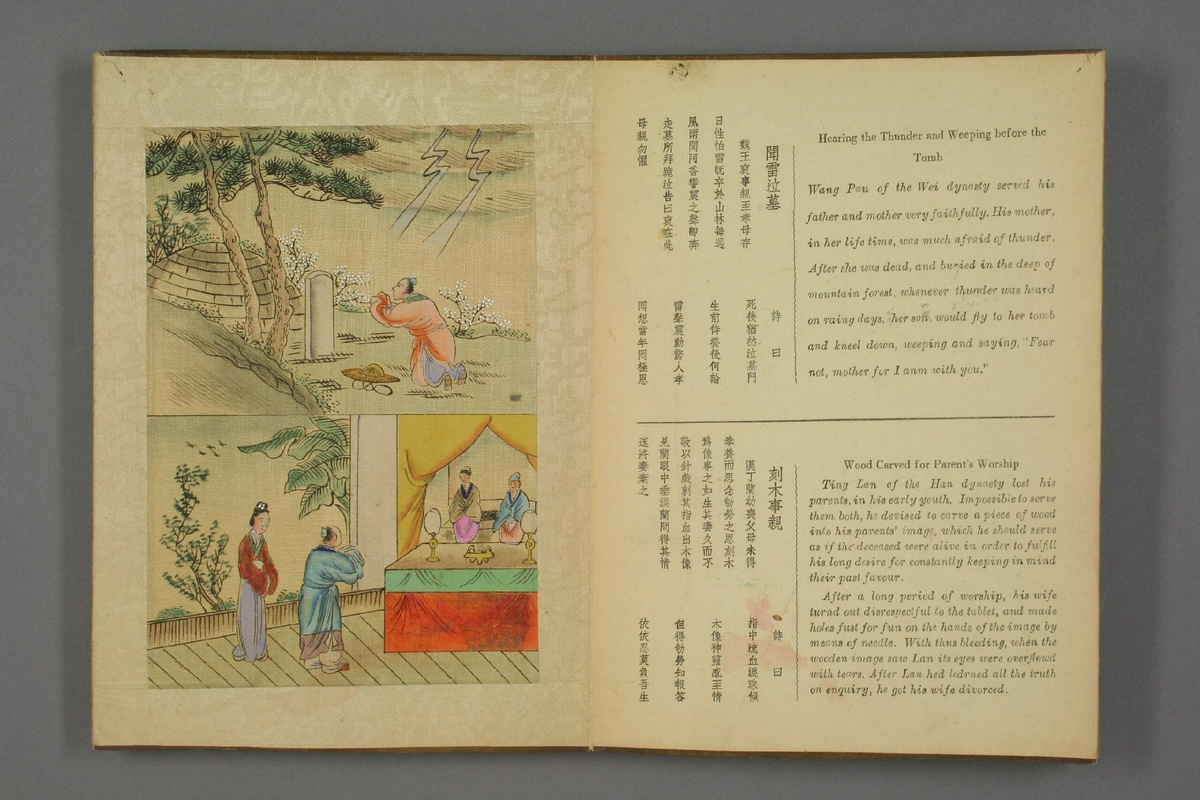 Hearing the Thunder and Weeping before the
Tomb
Wang Pau of the Wei dynasty served his
father and mother very faithfully. His mother,
in her life time, was much afraid of thunder.
After she was dead, and buried in the deep of
mountain forest, whenever thunder was heard
on raing days, her son would fly to her tomb
and kneel down, weeping and saying, "Fear
not, mother for I anm with you."
聞雷泣墓
魏王裒事親至孝母存
日性怕雷既卒於山林每遇
風雨聞阿香響震之聲即奔
走墓所拜跪泣告曰裒在此
母親勿懼
詩曰
死後猶然泣墓門
生前侍養後何論
雷聲震動驚人孝
同想當年罔極恩
Wood Carved for Parent's Worship
Ting Lan of the Han dynasty lost his
parents, in his early youth. Impossible to serve
them both, he devised to carve a piece of wood
into his parents' image, which he should serve
as if the deceased were alive in order to fulfill
his long desire for constantly keeping in mind
their past favour.
After a long period of worship, his wife
turnd out disrespectful to the tablet, and made
holes fust for fun on the hands of the image by
means of needle. With thus bleeding, when the
wooden image saw Lan its eyes were overflowd
with tears. After Lan hed ledrned all the truth
on enquiry, he got his wife divorced.
刻木事親
漢丁蘭幼喪父母未得
奉養而思念劬勞之恩刻木
爲像事之如生其妻久而不
敬以針戲刺其指血出木像
見蘭眼中垂淚蘭問得其情
遂將妻棄之
詩曰
指中流血淚珠傾
木像神靈感至情
但得劬勞知報答
依依忍莫負吾生